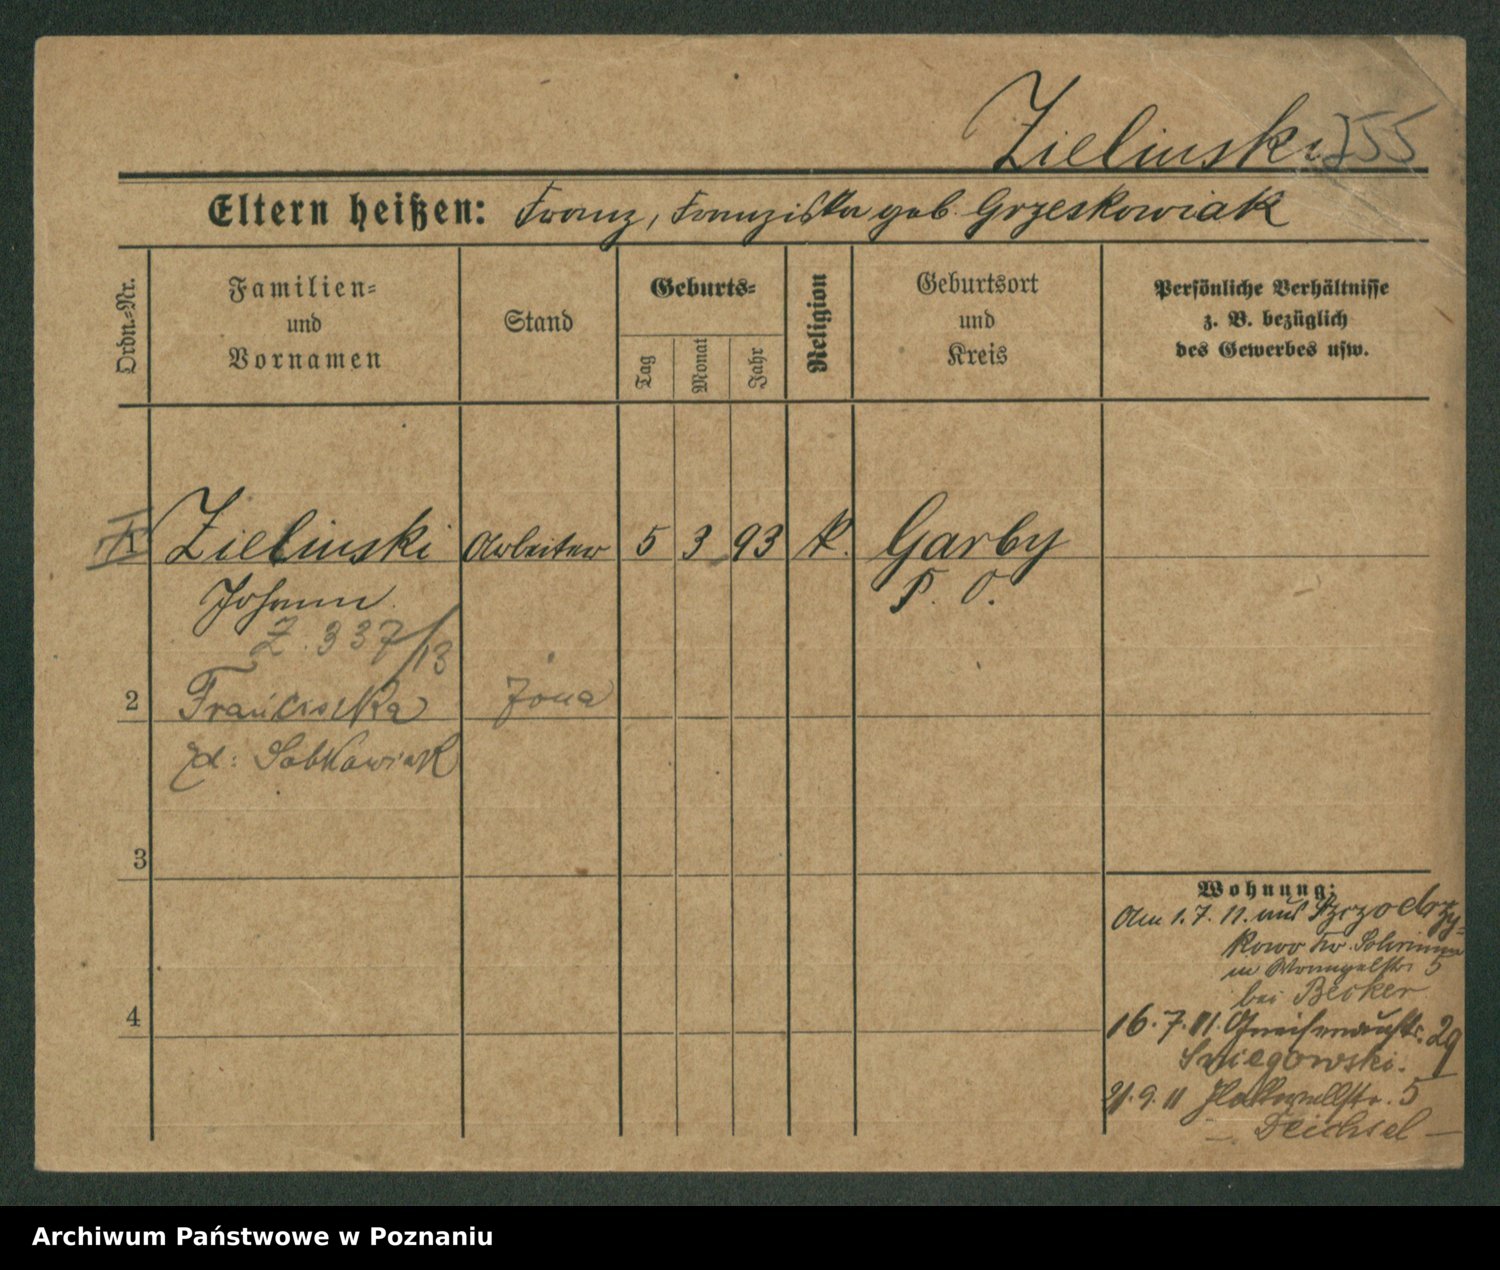 Zielinski 755
Eltern heißen: Franz, Franziska geb. Grzeskowiak
Ordn.-Nr.
Familien-
und
Vornamen
Stand
Geburts-
Tag
Monat
Jahr
Religion
Geburtsort
und
Kreis
Persönliche Verhältnisse
z. B. bezüglich
des Gewerbes usw.
Zielinski Arbeiter 5 3 93 k. Garby
Johann P. O.
Z. 337/13
2 Franciszka żona
zd: Sobkowiak
3
4
Wohnung:
Am 1. 7. 11. aus Szczodrzy-
kowo Kr. Schrimm
in 5
bei Becker
16. 7. 11. Gneisenaustr. 29
Sniegowski.
21. 9. 11 5
— Deichsel —
Archiwum Państwowe w Poznaniu